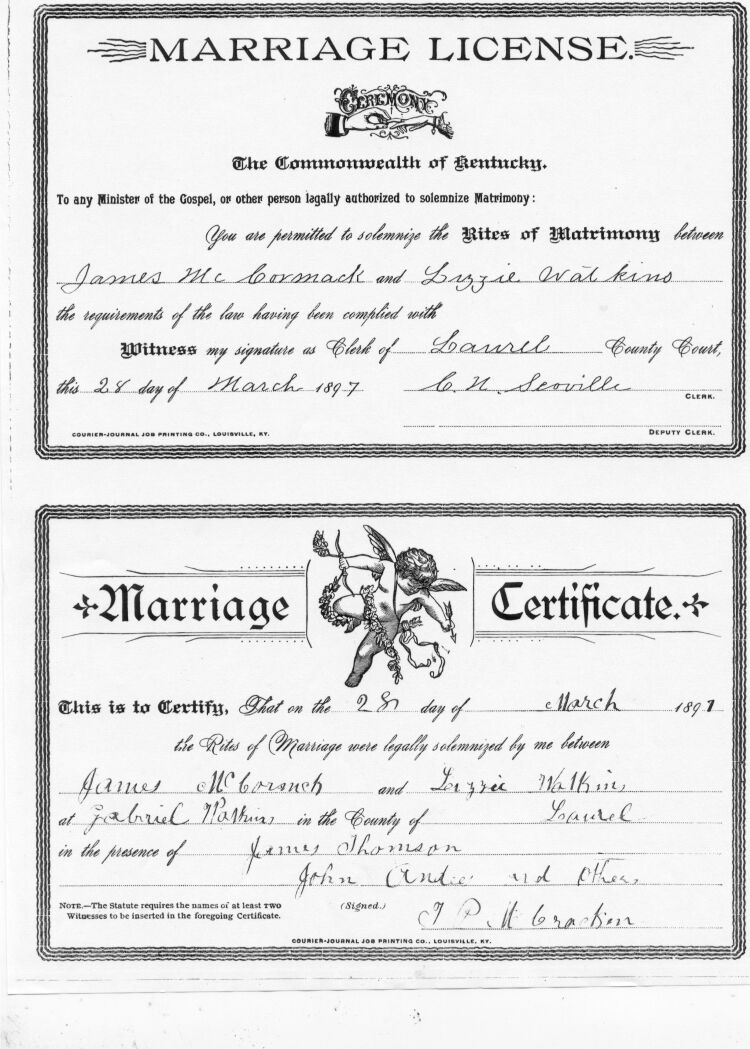 MARRIAGE LICENSE.
CEREMONY
The Commonwealth of Kentucky.
To any Minister of the Gospel, or other person legally authorized to solemnize Matrimony:
You are permitted to solemnize the Rites of Matrimony between
James McCormack and Lizzie Watkins
the requirements of the law having been complied with
Witness my signature as Clerk of Laurel County Court,
this 28 day of March 1897 C. N. Scoville
CLERK.
DEPUTY CLERK.
COURIER-JOURNAL JOB PRINTING CO., LOUISVILLE, KY.
Marriage Certificate.
This is to Certify, That on the 28 day of March 1897
the Rites of Marriage were legally solemnized by me between
James and Lizzie Watkins
at Gabriel Watkins in the County of Laurel
in the presence of James Thomson
John and Others
NOTE.—The Statute requires the names of at least TWO
Witnesses to be inserted in the foregoing Certificate.
(Signed.)
COURIER-JOURNAL JOB PRINTING CO., LOUISVILLE, KY.